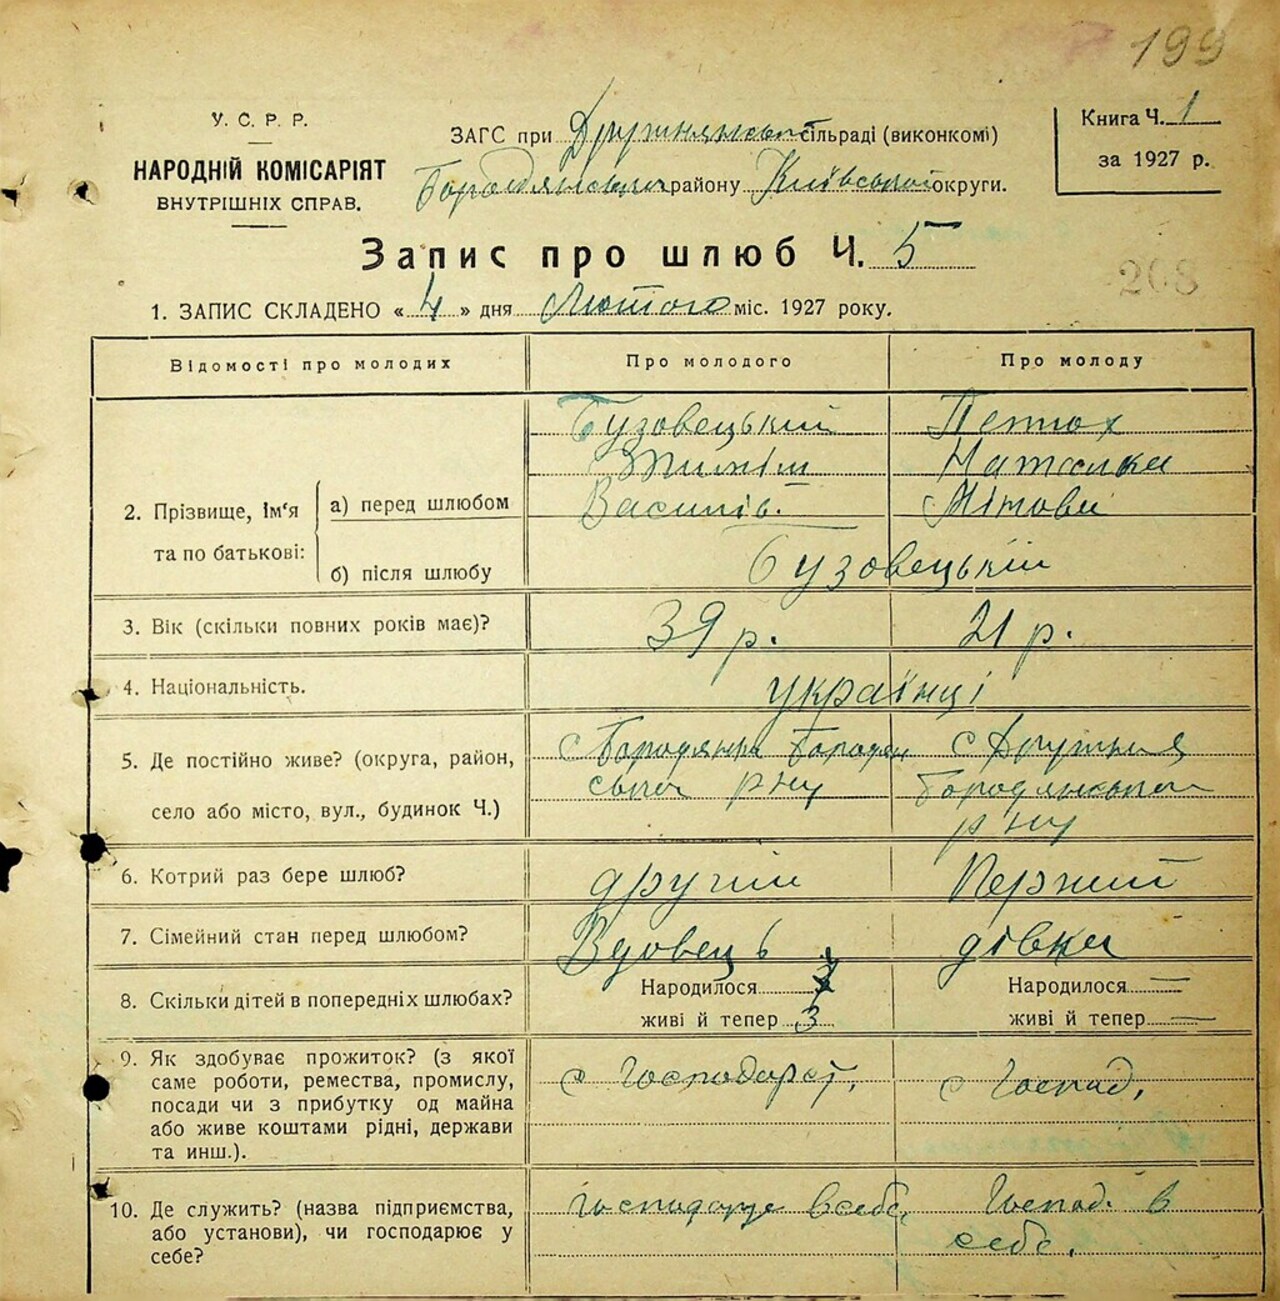 199
У. С. Р. Р.
НАРОДНІЙ КОМІСАРІЯТ
ВНУТРІШНІХ СПРАВ.
ЗАГС при Дружнянській сільраді (виконкомі)
Бородянського району Київської округи.
Книга Ч. 1
за 1927 р.
Запис про шлюб Ч. 5
208
1. ЗАПИС СКЛАДЕНО « 4 » дня Лютого міс. 1927 року.
Відомості про молодих
Про молодого
Про молоду
2. Прізвище, ім‘я
та по батькові:
а) перед шлюбом
б) після шлюбу
Бузовецький
Василів.
Петтох
Наталка
Бузовецькій
3. Вік (скільки повних років має)?
39 р.
21 р.
4. Національність.
українці
5. Де постійно живе? (округа, район,
село або місто, вул., будинок Ч.)
с Бородянка Бородян
ського р ну
с Дружня
Бородянського
р ну
6. Котрий раз бере шлюб?
другий
Перший
7. Сімейний стан перед шлюбом?
Вдовець
дівка
8. Скільки дітей в попередніх шлюбах?
Народилося
живі й тепер 3
Народилося —
живі й тепер —
9. Як здобуває прожиток? (з якої
саме роботи, ремества, промислу,
посади чи з прибутку од майна
або живе коштами рідні, держави
та инш.).
с Господарст,
с Господ,
10. Де служить? (назва підприємства,
або установи), чи господарює у
себе?
Господарує в себе,
Господ. в
себе.